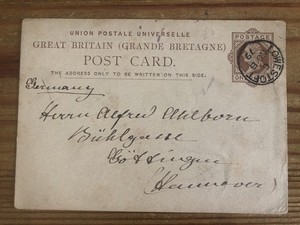 UNION POSTALE UNIVERSELLE
GREAT BRITAIN (GRANDE BRETAGNE)
POST CARD.
THE ADDRESS ONLY TO BE WRITTEN ON THIS SIDE.
POSTAGE
LOWESTOFT
79
Germany
Herrn Alfred Ahlborn
Bühlgasse
Göttingen
(Hannover)